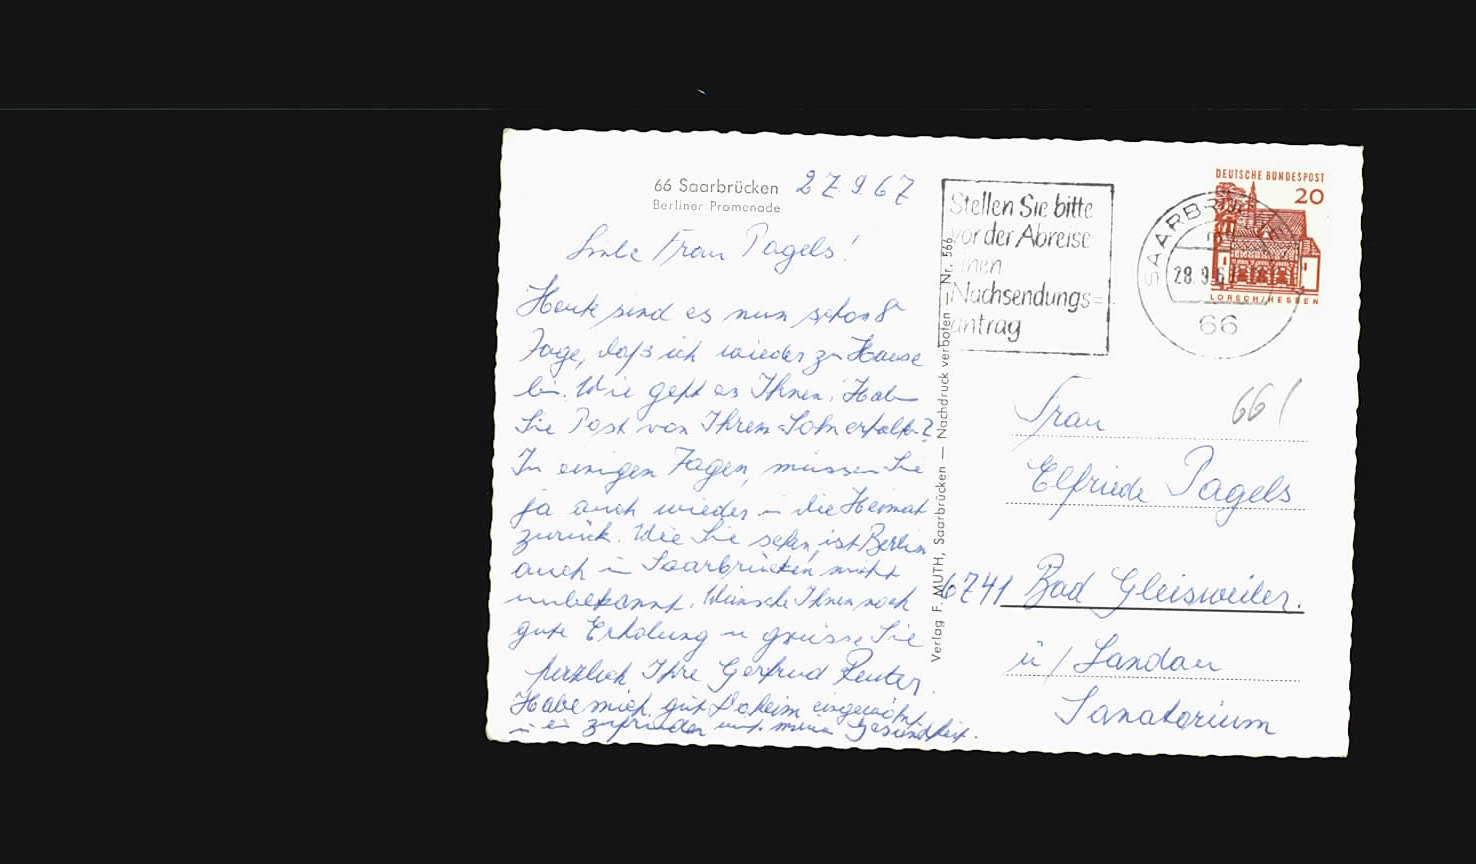 66 Saarbrücken
Berliner Promenade
27.9.67
Liebe Frau Pagels!
Heute sind es nun schon 8
Tage, daß ich wieder zu Hause
bin. Wie geht es Ihnen? Haben
Sie Post von Ihrem Sohn erhalten?
In einigen Tagen, müssen Sie
ja auch wieder in die Heimat
zurück. Wie Sie sehen, ist Berlin
auch in Saarbrücken nicht
unbekannt. Wünsche Ihnen noch
gute Erholung u grüsse Sie
herzlich Ihre Gertrud Reuter.
Habe mich gut daheim eingewöhnt
zufrieden mit meiner Gesundheit.
Verlag F. MUTH, Saarbrücken — Nachdruck verboten — Nr. 566
Stellen Sie bitte
vor der Abreise
einen
Nachsendungs=
antrag
SAARBRÜCKEN
28.9.67
66
DEUTSCHE BUNDESPOST
20
LORSCH/HESSEN
66/
Frau
Elfriede Pagels
6741 Bad Gleisweiler.
ü/Landau
Sanatorium